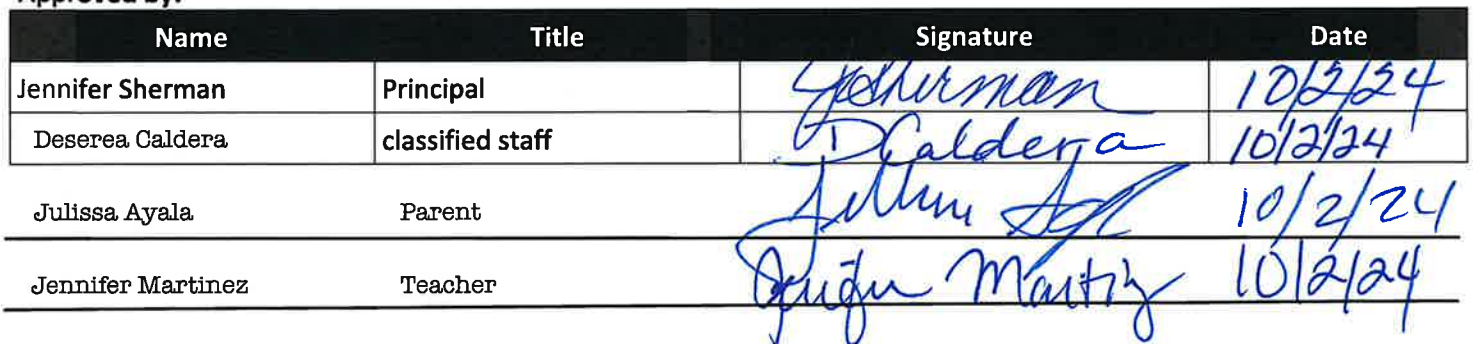 Approved by:
Name Title Signature Date
Jennifer Sherman Principal JSherman 10/2/24
Deserea Caldera classified staff D Caldera 10/2/24
Julissa Ayala Parent 10/2/24
Jennifer Martinez Teacher 10/2/24